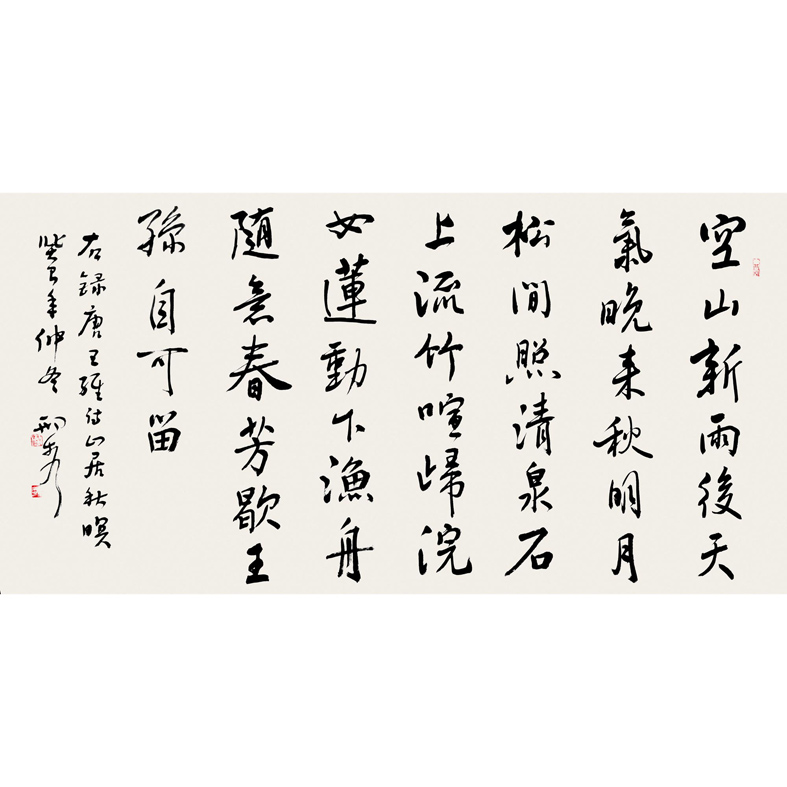 空山新雨後天
氣晚来秋明月
松間照清泉石
上流竹喧歸浣
女蓮動下漁舟
随意春芳歇王
孫自可留
右録唐王維诗山居秋暝
癸巳年仲冬